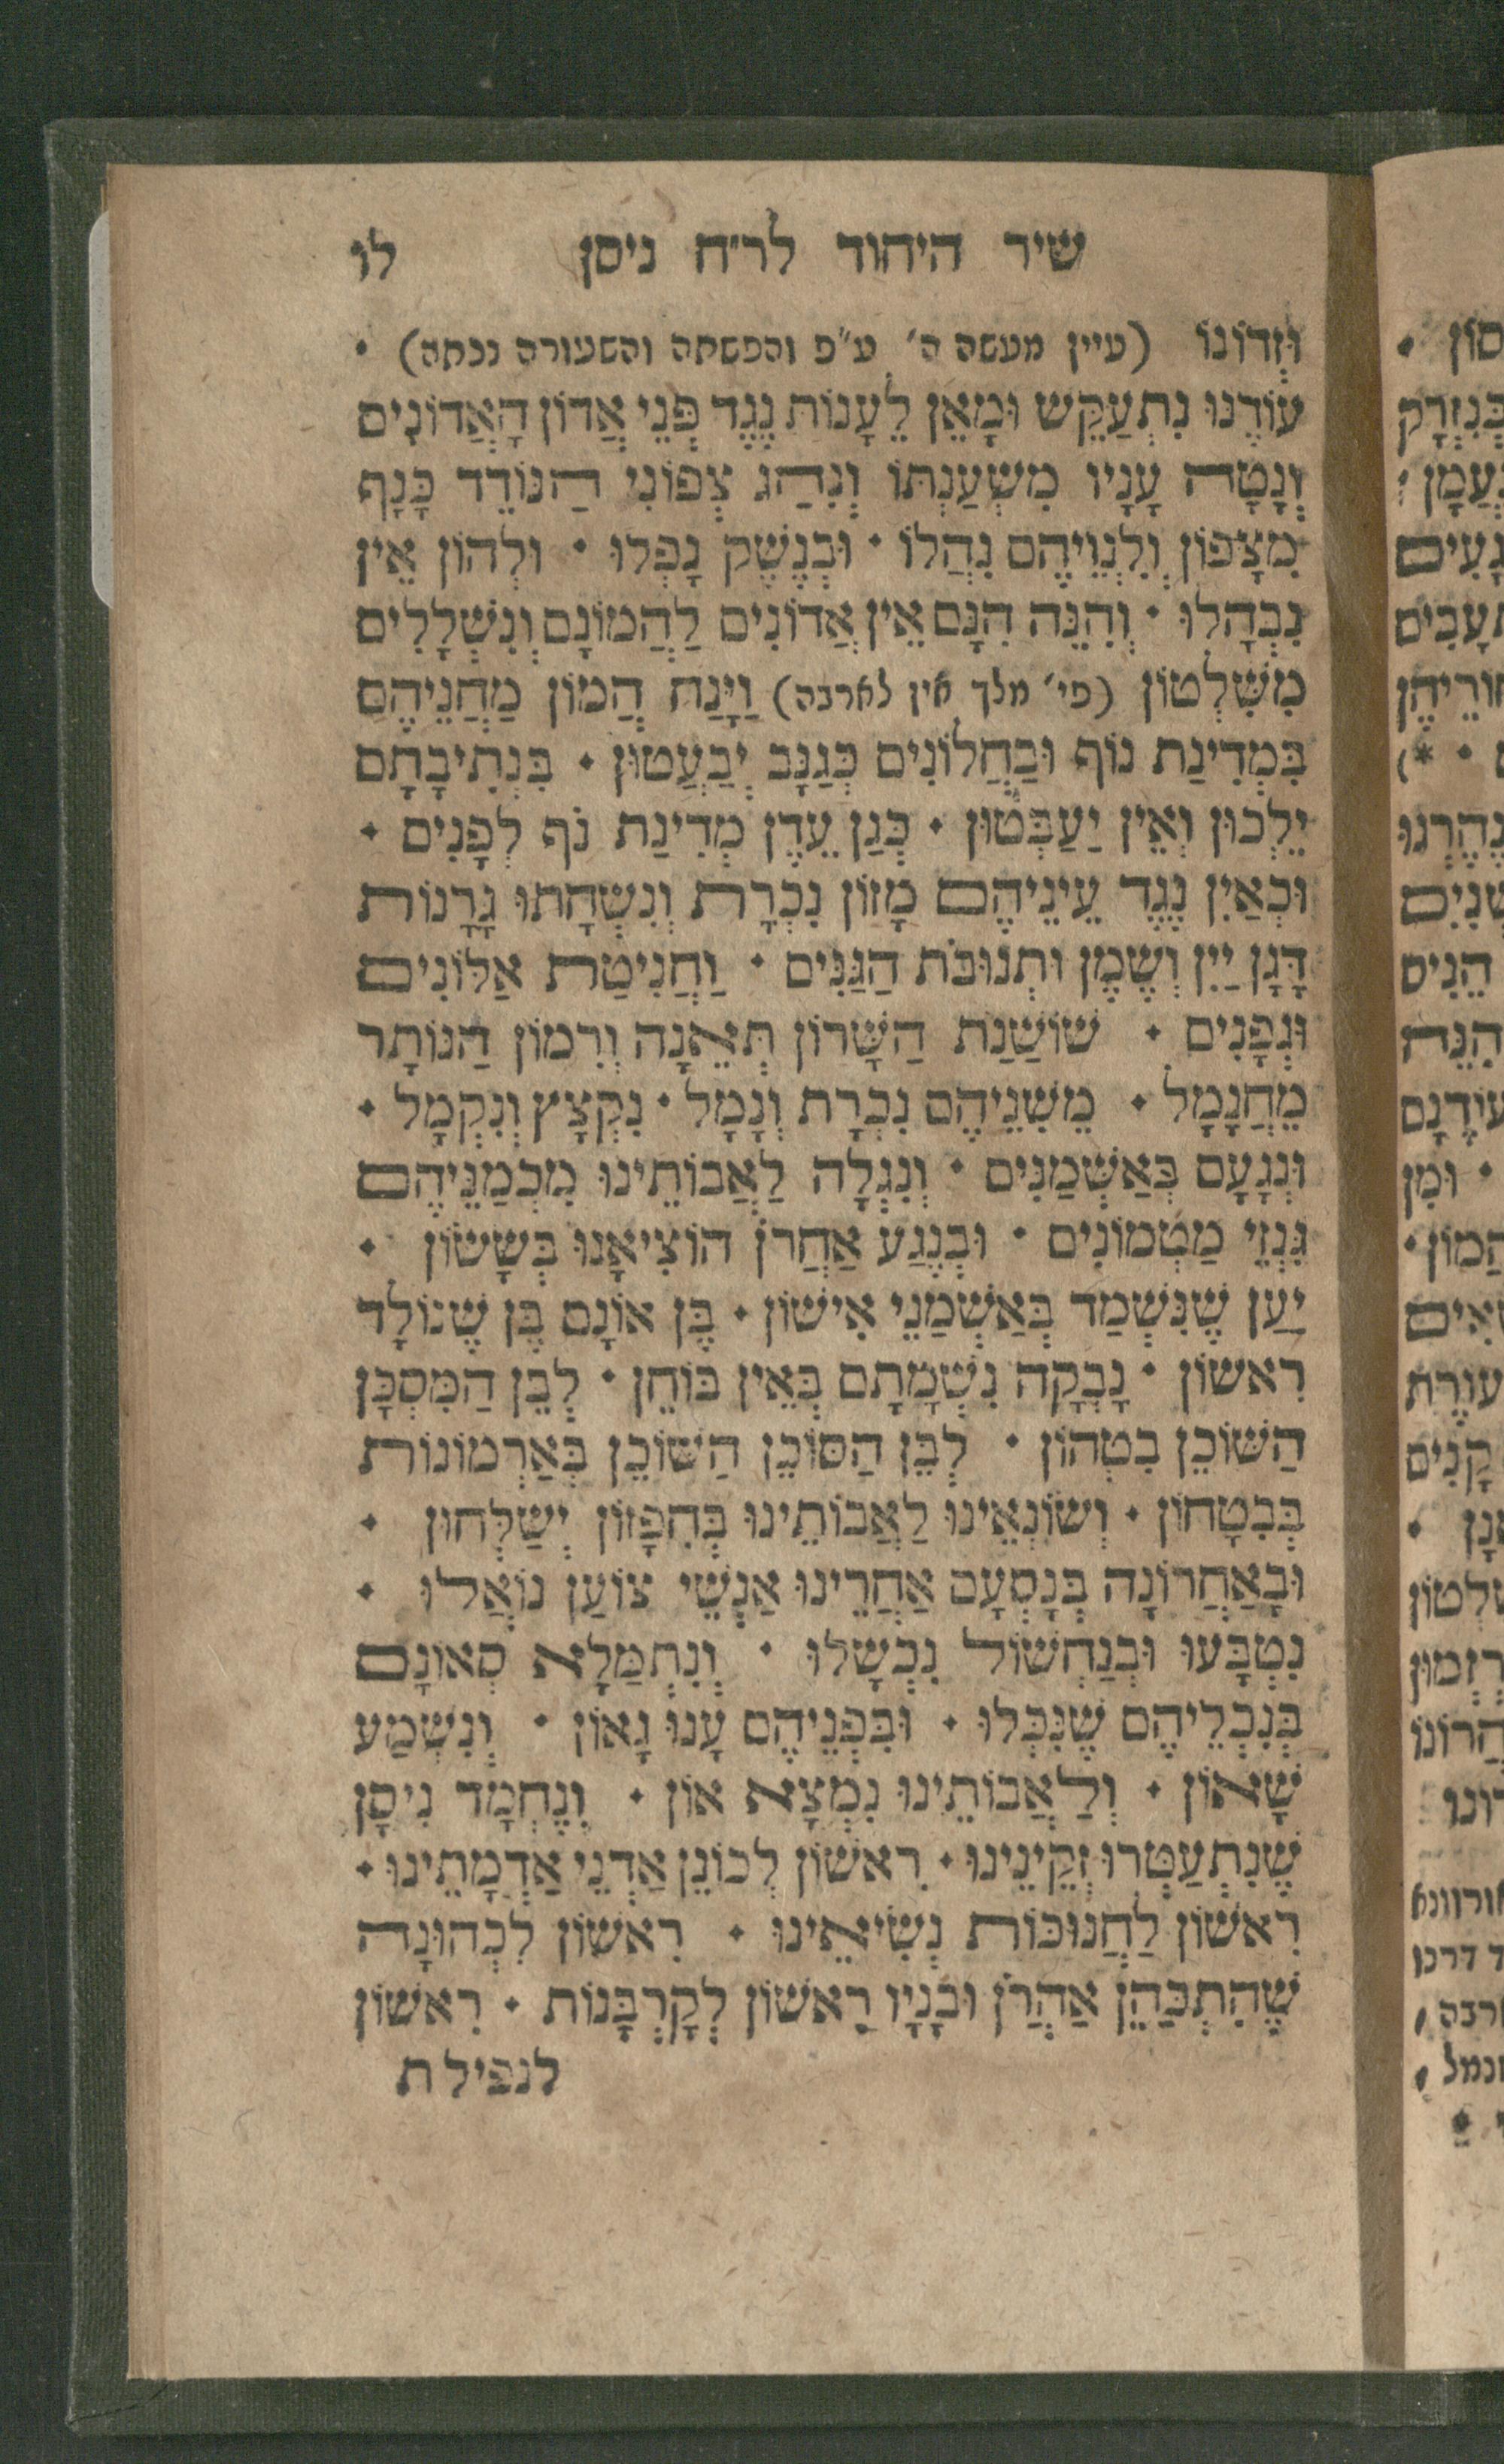 שיר היחוד לר״ח ניסן לו
וּזְדוֹנוֹ (עיין מעשה ה׳ ע״פ והפשתה והשעורה נכתה) ·
עוֹרֶנוּ נִתְעַקֵּשׁ וּמָאֵן לֵעָנוֹת נֶגֶד פְּנֵי אֲדוֹן הָאֲדוֹנִים
וְנָטָה עָנָיו מִשְׁעַנְתּוֹ וְנִהַג צְפוֹנִי הַנּוֹדֵד כָּנָף
מִצָּפוֹן וְלִנְוֵיהֶם נִהֲלוֹ · וּבְנֶשֶׁק נָפְלוּ · וּלְהוֹן אֵין
נִבְהָלוּ · וְהִנֵּה הִנָּם אֵין אֲדוֹנִים לַהֲמוֹנָם וְנִשְׁלָלִים
מִשִּׁלְטוֹן (פי׳ מלך אין לארבה) וַיָּנַח הֲמוֹן מַחֲנֵיהֶם
בִּמְדִינַת נוֹף וּבַחֲלוֹנִים כְּגַנָּב יְבַעֲטוּן · בִּנְתִיבָתָם
יֵלְכוּן וְאֵין יַעַבְּטוּן · כְּגַן עֵדֶן מְדִינַת נֹף לְפָנִים ·
וּכְאַיִן נֶגֶד עֵינֵיהֶם מָזוֹן נִכְרָת וְנִשְׁחָתוּ גָרָנוֹת
דָּגָן יַיִן וְשֶׁמֶן וּתְנוּבֹת הַגַּנִּים · וַחֲנִיטַת אַלּוֹנִים
וּגְפָנִים · שׁוֹשַׁנַת הַשָּׁרוֹן תְּאֵנָה וְרִמּוֹן הַנּוֹתָר
מֵחֲנָמָל · מִשִּׁנֵּיהֶם נִכְרָת וְנָמָל · נִקְצָץ וְנִקְמָל ·
וּנְגָעָם בְּאַשְׁמַנִּים · וְנִגְלָה לַאֲבוֹתֵינוּ מִכְמַנֵּיהֶם
גִּנְזֵי מַטְמוֹנִים · וּבְנֶגַע אַחֲרֹן הוֹצִיאָנוּ בְּשָׂשׂוֹן ·
יַעַן שֶׁנִּשְׁמַד בְּאַשְׁמַנֵּי אִישׁוֹן · בֶּן אוֹנָם בֶּן שֶׁנּוֹלָד
רִאשׁוֹן · נָבְקָה נִשְׁמָתָם בְּאֵין בּוֹחֵן · לְבֵן הַמִּסְכָּן
הַשּׁוֹכֵן בִּטְהוֹן · לְבֵן הַסּוֹכֵן הַשּׁוֹכֵן בְּאַרְמוֹנוֹת
בְּבִטָּחוֹן · וְשׂוֹנְאֵינוּ לַאֲבוֹתֵינוּ בְּחִפָּזוֹן יְשַׁלְּחוּן ·
וּבָאַחֲרוֹנָה בְּנָסְעָם אַחֲרֵינוּ אַנְשֵׁי צוֹעַן נוֹאֲלוּ ·
נִטְבָּעוּ וּבְנַחְשׁוֹל נִכְשָׁלוּ · וְנִתְמַלָּא סְאוֹנָם
בְּנִכְלֵיהֶם שֶׁנִּכְּלוּ · וּבִּפְנֵיהֶם עָנוּ גָאוֹן · וְנִשְׁמַע
שָׁאוֹן · וְלַאֲבוֹתֵינוּ נִמְצָא אוֹן · וְנֶחְמָד נִיסָן
שֶׁנִּתְעַטְּרוּ זְקֵינֵינוּ · רִאשׁוֹן לְכוֹנֵן אַדְנֵי אַדְמָתֵינוּ ·
רִאשׁוֹן לַחֲנוּכּוֹת נְשִׂיאֵינוּ · רִאשׁוֹן לִכְהוּנָה
שֶׁהִתְכַּהֵן אַהֲרֹן וּבָנָיו רִאשׁוֹן לְקָרְבָּנוֹת · רִאשׁוֹן
לנפילת